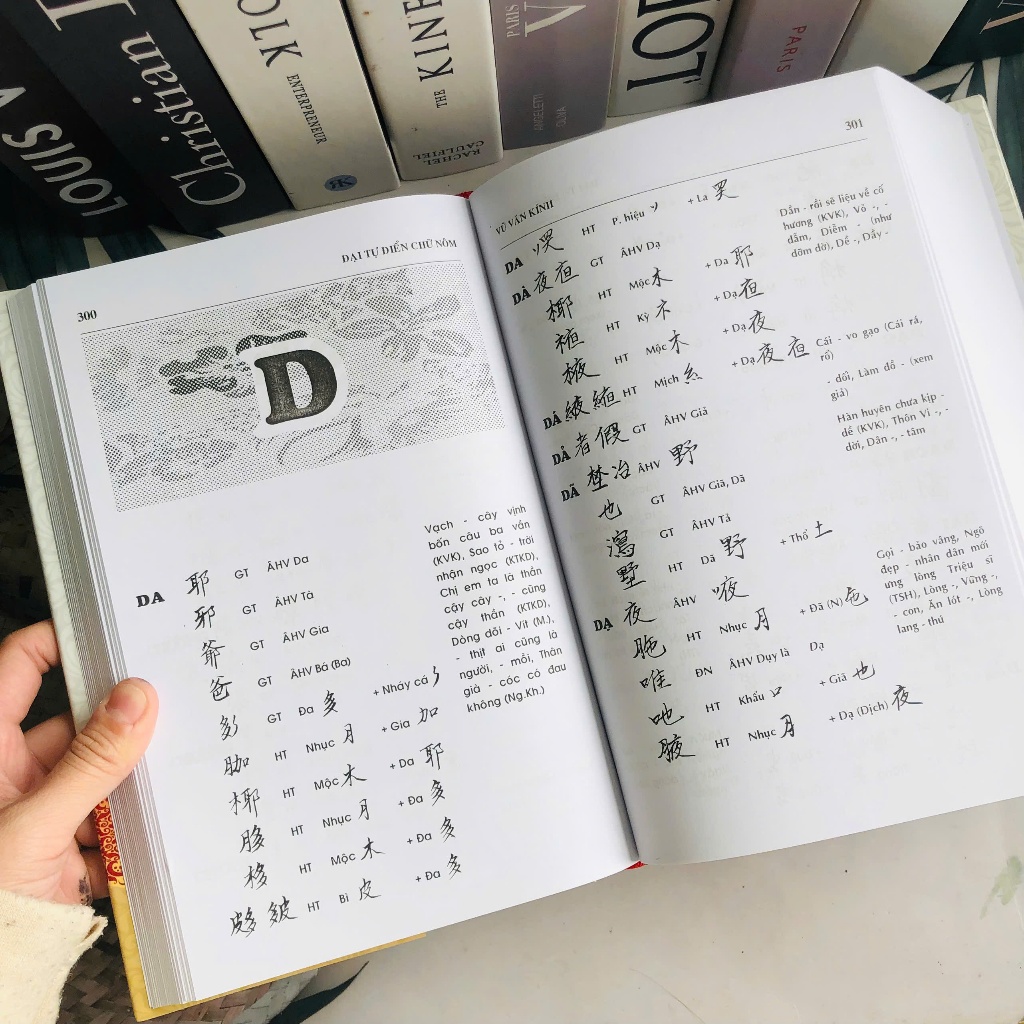 LOUIS V
Christian
FOLK
ENTERPRENEUR
THE KINF
RACHEL CAULFIEL
PARIS
ANGELETTI
OLIVA
PARIS
300
ĐẠI TỰ ĐIỂN CHỮ NÔM
D
DA 耶 GT ÂHV Da
耶 GT ÂHV Tà
爺 GT ÂHV Gia
爸 GT ÂHV Bá (Ba)
GT Đa 多 + Nháy cá
𦙫 HT Nhục 月 + Gia 加
椰 HT Mộc 木 + Da 耶
HT Nhục 月 + Đa 多
栘 HT Mộc 木 + Đa 多
HT Bì 皮 + Đa 多
Vạch - cây vịnh
bốn câu ba vần
(KVK), Sao tỏ - trời
nhận ngọc (KTKD),
Chị em ta là thần
cậy cây -, - cũng
cậy thần (KTKD),
Dòng dõi - Vít (M.),
- thịt ai cũng là
người, - mồi, Thân
già - cóc có đau
không (Ng.Kh.)
VŨ VĂN KÍNH
301
DA HT P. hiệu + La
DÀ 夜 亱 GT ÂHV Dạ
椰 HT Mộc 木 + Da 耶
HT Kỳ 礻 + Dạ 亱
HT Mộc 木 + Dạ 夜
HT Mịch 糸 + Dạ 夜 亱
DẢ 者 假 GT ÂHV Giả
DÃ 埜 冶 ÂHV 野
也 GT ÂHV Giã, Dã
瀉 GT ÂHV Tả
墅 HT Dã 野 + Thổ 土
DẠ 夜 ÂHV 㖡
HT Nhục 月 + Đã (N) 色
唯 ĐN ÂHV Dụy là Dạ
吔 HT Khẩu 口 + Giã 也
腋 HT Nhục 月 + Dạ (Dịch) 夜
Dần - rồi sẽ liệu về cố
hương (KVK), Vỏ -, -
dầm, Diềm - (như
dõm dờ), Dề -, Dầy -
Cái - vo gạo (Cái rá,
rổ)
- dối, Làm đồ - (xem
giả)
Hàn huyên chưa kịp -
dề (KVK), Thôn Vi -, -
dời, Dân -, - tâm
Gọi - bảo vâng, Ngõ
đẹp - nhân dân mới
ưng lòng Triệu sĩ
(TSH), Lòng -, Vững -,
- con, Ăn lót -, Lòng
lang - thú